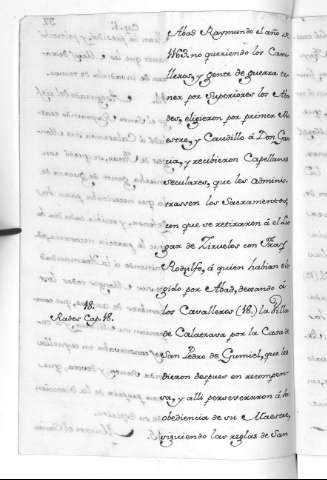 Abad Raymundo el año de
1163. no queriendo los Cava-
lleros, y gente de guerra te-
ner por Superiores los Aba-
des, eligieron por primer Ma-
estre, y Caudillo à Don Gar-
cia, y recibieron Capellanes
seculares, que les adminis-
trassen los Sacramentos,
con que se retiraron à el Lu-
gar de Ziruelos con Fray
Rodulfo, à quien habian ele-
gido por Abad, dexando à
los Cavalleros (18.) la Villa
de Calatrava por la Casa de
San Pedre de Gumiel, que les
dieron despues en recompen-
sa, y alli perseveraron à la
obediencia de su Maestre,
siguiendo las reglas de San
18.
Rades Cap. 18.